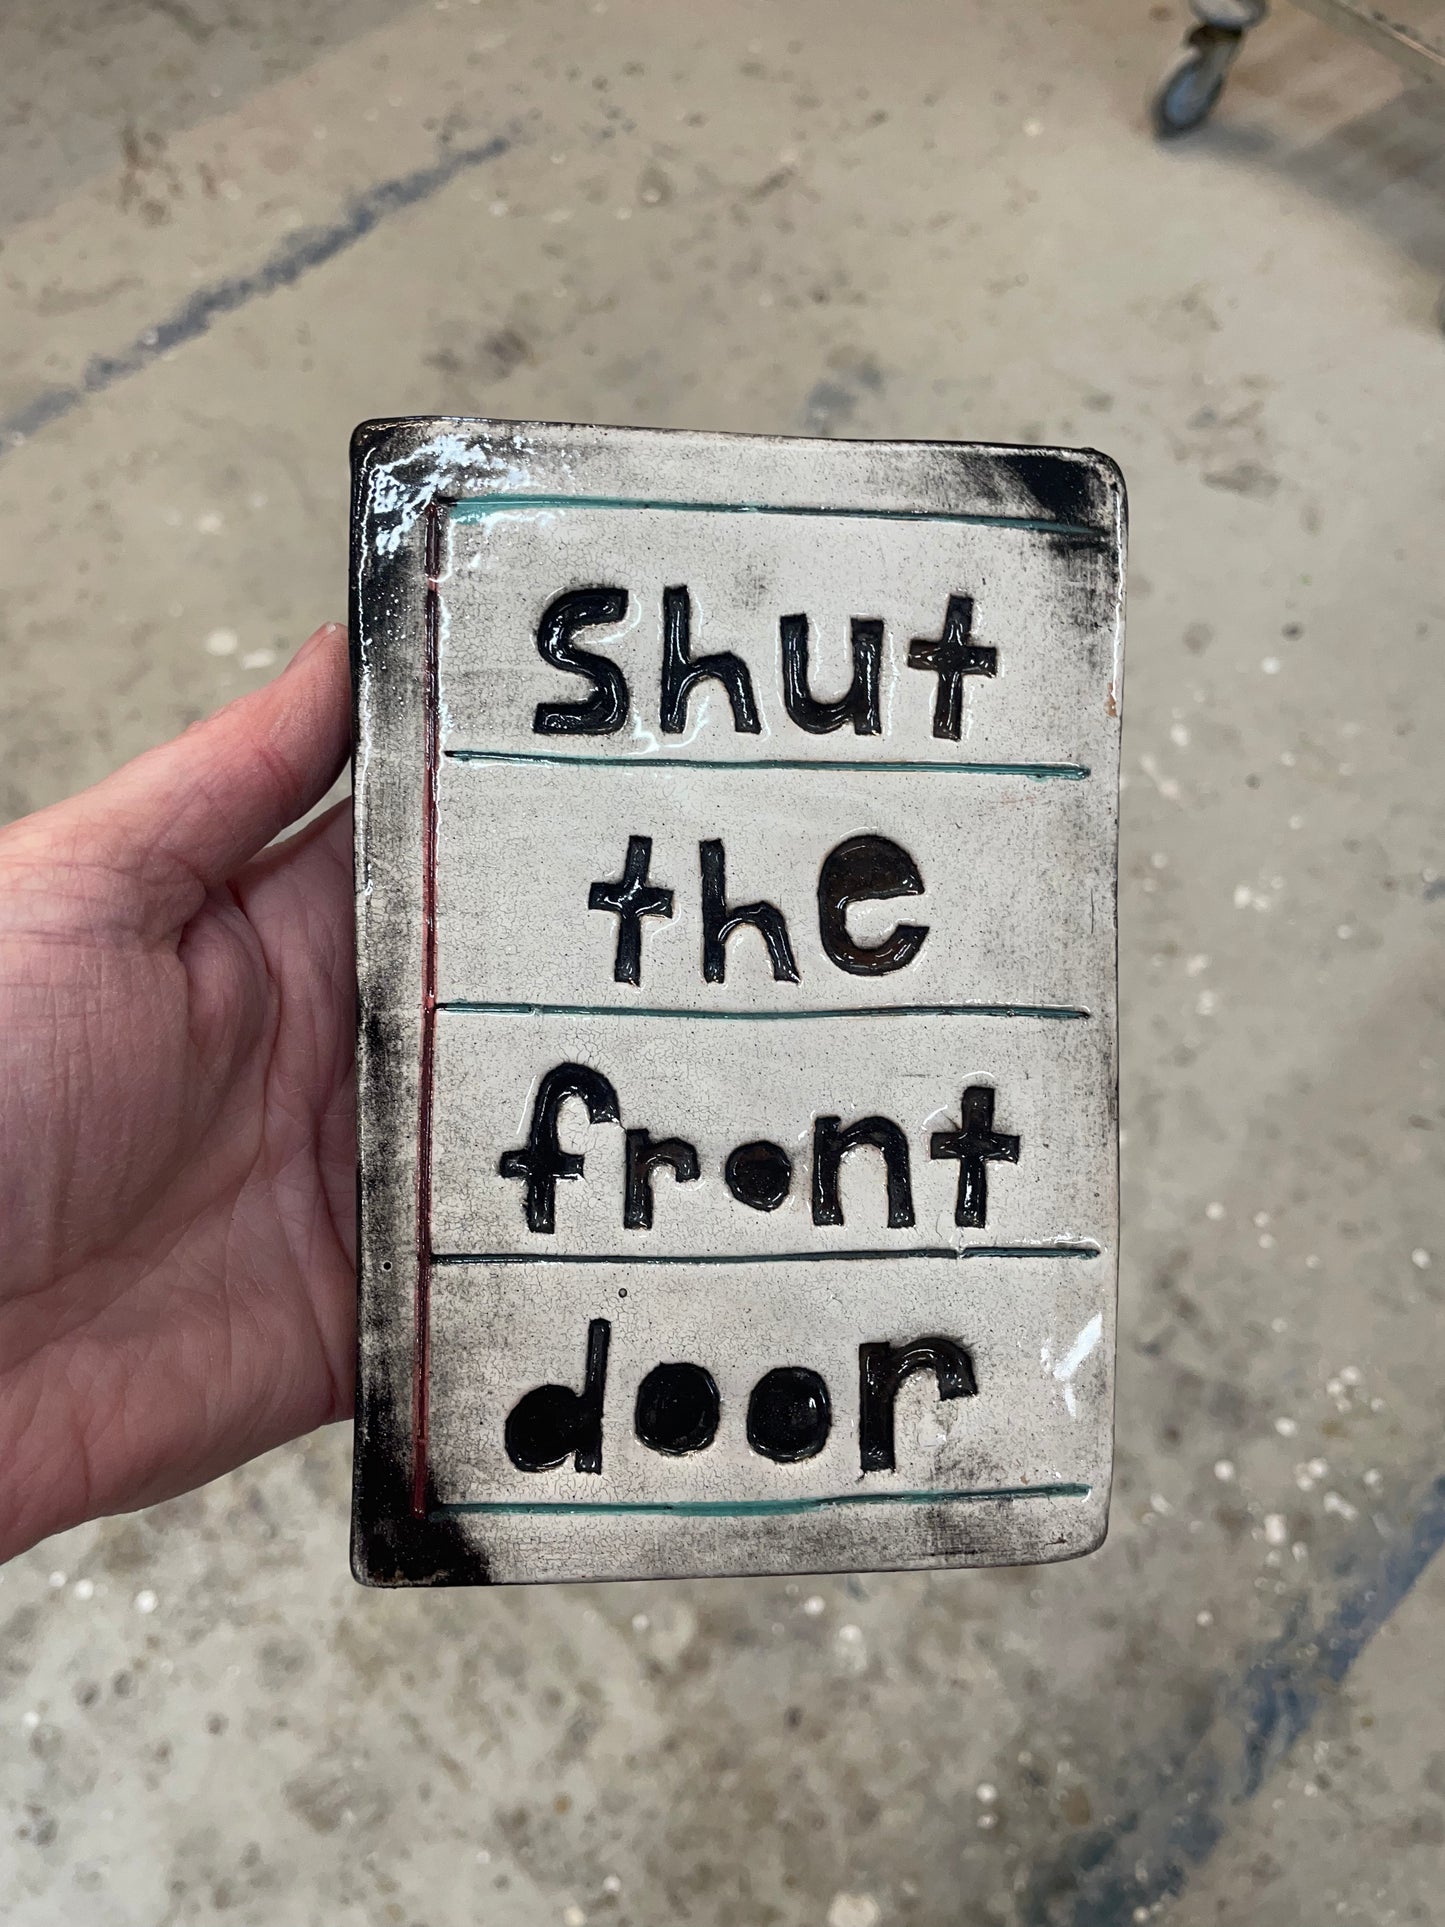 Shut
the
front
door